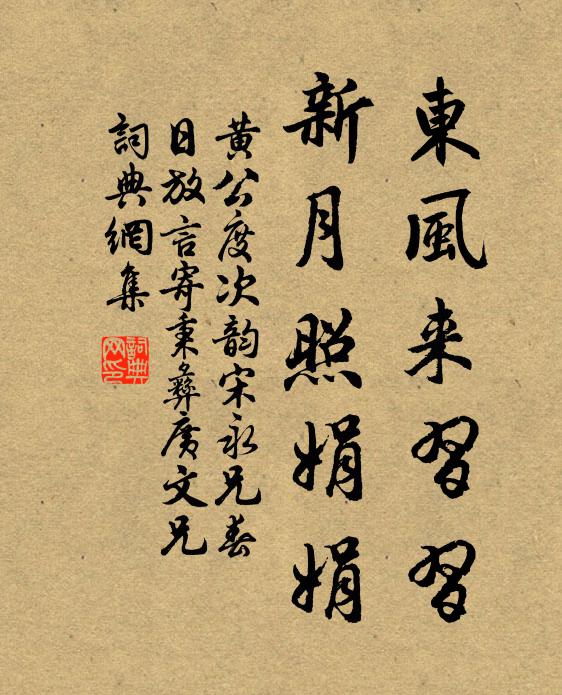 東風来習習
新月照娟娟
黄公度次韵宋永兄春
日放言寄秉彝廣文兄
詞典網集
詞典网印